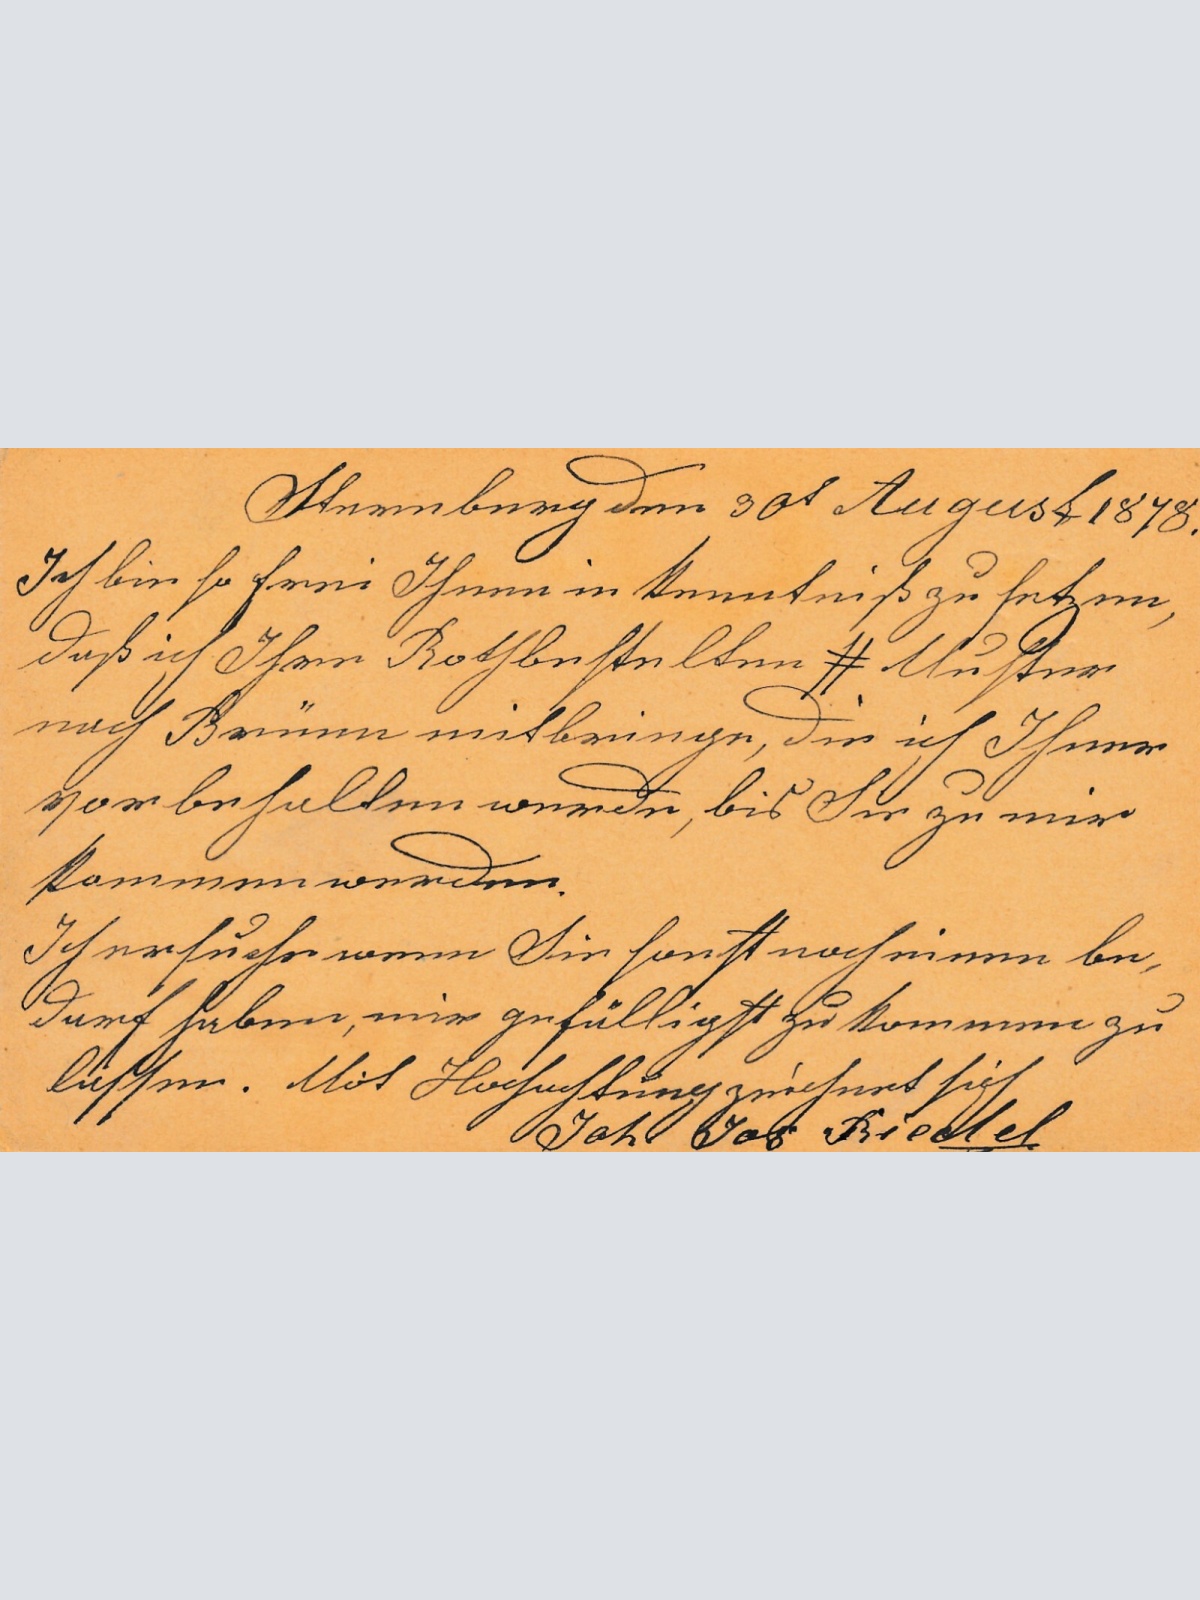 Sternberg den 30t August 1878.
Ich bin so frei Ihnen in Kenntniß zu setzen,
daß ich Ihre Rothbestelten # Muster
nach Brünn mitbringe, die ich Ihnen
vorbehalten werde, bis Sie zu mir
kommen werden.
Ich ersuche wenn Sie sonst noch einen be-
darf haben, mir gefülligst zu kommen zu
lassen. Mit Hochachtung zeichnet sich
Joh Jos Riedel